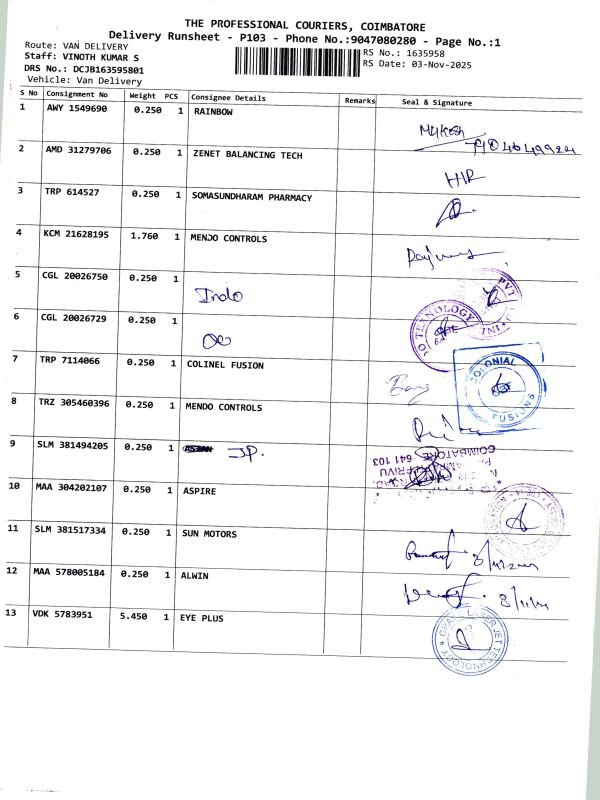 THE PROFESSIONAL COURIERS, COIMBATORE
Delivery Runsheet - P103 - Phone No.:9047080280 - Page No.:1
Route: VAN DELIVERY
RS No.: 1635958
Staff: VINOTH KUMAR S
RS Date: 03-Nov-2025
DRS No.: DCJB163595801
Vehicle: Van Delivery
S No Consignment No Weight PCS Consignee Details Remarks Seal & Signature
1 AWY 1549690 0.250 1 RAINBOW
Mukesh
2 AMD 31279706 0.250 1 ZENET BALANCING TECH
HIR
3 TRP 614527 0.250 1 SOMASUNDHARAM PHARMACY
4 KCM 21628195 1.760 1 MENDO CONTROLS
5 CGL 20026750 0.250 1 Indo
PVT
6 CGL 20026729 0.250 1
TECHNOLOGY
7 TRP 7114066 0.250 1 COLINEL FUSION
COLONIAL
FUSIONS
8 TRZ 305460396 0.250 1 MENDO CONTROLS
9 SLM 381494205 0.250 1 J.P.
COIMBATORE - 641 103
10 MAA 304202107 0.250 1 ASPIRE
11 SLM 381517334 0.250 1 SUN MOTORS
12 MAA 578005184 0.250 1 ALWIN
13 VDK 5783951 5.450 1 EYE PLUS
LASERJET TECHNOLOGY